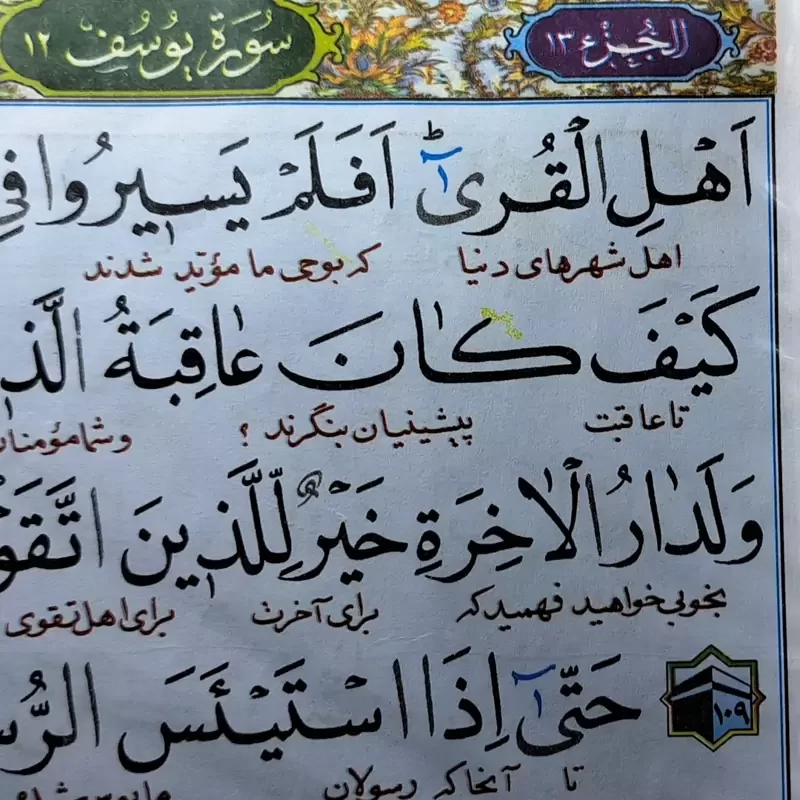 الجُزء ١٣
سُورَة يُوسُف ١٢
اَهْلِ الْقُرىٰٓ اَفَلَمْ يَسيرُوا فِي
اهل شهرهای دنیا که بوحی ما مؤید شدند
كَيْفَ كٰانَ عٰاقِبَةُ الَّذ
تا عاقبت پیشینیان بنگرند ؟ و شما مؤمنان
وَلَدٰارُ الْاٰخِرَةِ خَيْرٌ لِلَّذينَ اتَّقَوْ
بخوبی خواهید فهمید که برای آخرت برای اهل تقوی
١٠٩ حَتّىٰٓ اِذَا اسْتَيْئَسَ الرُّس
تا آنجا که رسولان